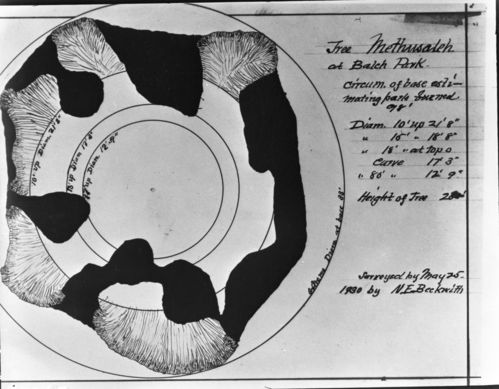 Tree Methusaleh
at Balch Park.
Circum. of base esti-
mating park burned
98'
Diam. 10' up 21' 8"
" 15' " 18' 8"
" 18' " at top o
Curve 17' 3"
" 80' " 12' 9"
Height of Tree
Surveyed by May 25
1930 by N.E. Beckwith
10' up Diam. 21' 8"
15' up Diam 18' 8"
up Diam 12' 9"
Diam at base